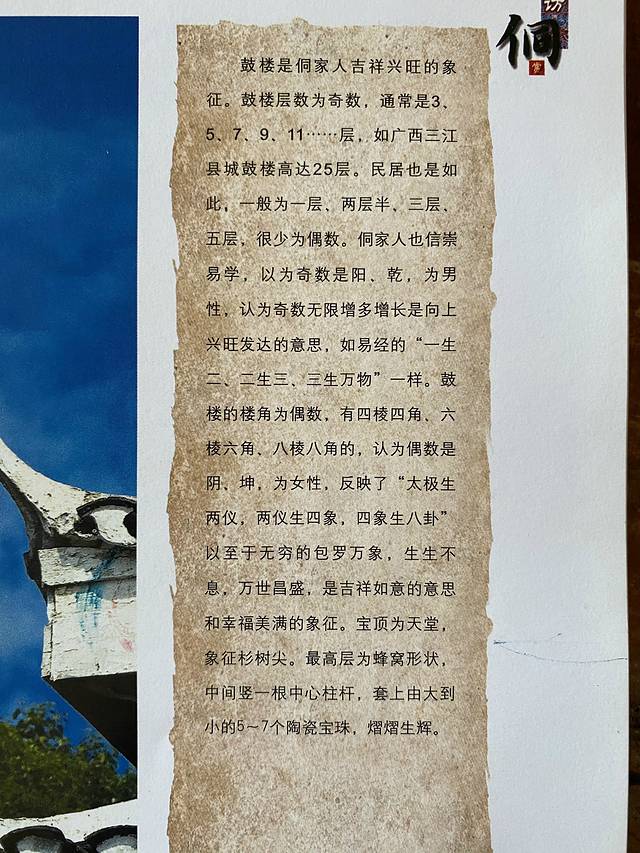 访
侗
鼓楼是侗家人吉祥兴旺的象
征。鼓楼层数为奇数，通常是3、
5、7、9、11……层，如广西三江
县城鼓楼高达25层。民居也是如
此，一般为一层、两层半、三层、
五层，很少为偶数。侗家人也信崇
易学，以为奇数是阳、乾，为男
性，认为奇数无限增多增长是向上
兴旺发达的意思，如易经的“一生
二、二生三、三生万物”一样。鼓
楼的楼角为偶数，有四棱四角、六
棱六角、八棱八角的，认为偶数是
阴、坤，为女性，反映了“太极生
两仪，两仪生四象，四象生八卦”
以至于无穷的包罗万象，生生不
息，万世昌盛，是吉祥如意的意思
和幸福美满的象征。宝顶为天堂，
象征杉树尖。最高层为蜂窝形状，
中间竖一根中心柱杆，套上由大到
小的5～7个陶瓷宝珠，熠熠生辉。